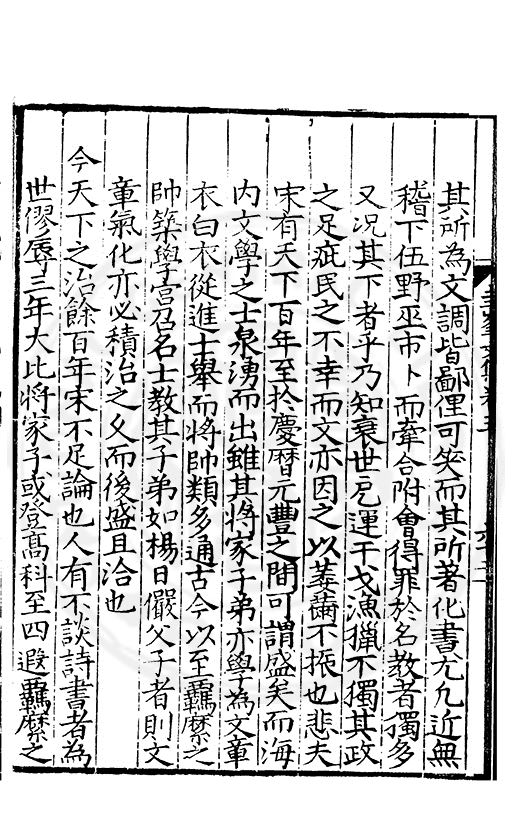 其所為文調皆鄙俚可笑而其所著化書尤九近無
稽下伍野巫市卜而牽合附會得罪於名教者獨多
又况其下者乎乃知衰世厄運干戈漁獵不獨其政
之足疵民之不幸而文亦因之以萎薾不振也悲夫
宋有天下百年至於慶曆元豐之間可謂盛矣而海
内文學之士泉湧而出雖其將家子弟亦學為文章
衣白衣從進士舉而將帥類多通古今以至羈縻之
帥築學宫召名士教其子弟如楊日儼父子者則文
章氣化亦必積治之久而後盛且洽也
今天下之治餘百年宋不足論也人有不談詩書者為
世僇辱三年大比將家子或登髙科至四遐羈縻之